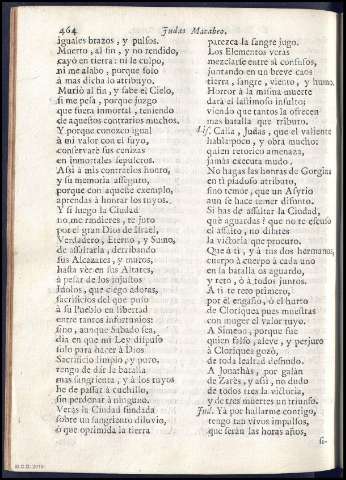 464
Judas Macabeo.
iguales brazos, y pulsos.
Muerto, al fin, y no rendido,
cayò en tierra: ni le culpo,
ni me alabo, porque solo
à mas dicha lo atribuyo.
Muriò al fin, y sabe el Cielo,
si me pesa, porque juzgo
que fuera inmortal, teniendo
de aquestos contrarios muchos.
Y porque conozco igual
à mi valor con el suyo,
conservarè sus cenizas
en inmortales sepulcros.
Assi à mis contrarios honro,
y su memoria asseguro,
porque con aqueste exemplo,
aprendas à honrar los tuyos.
Y si luego la Ciudad
no me rindieres, te juro
por el gran Dios de Israel,
Verdadero, Eterno, y Sumo,
de assaltarla, derribando
sus Alcazares, y muros,
hasta vèr en sus Altares,
à pesar de los injustos
Idolos, que ciego adoras,
sacrificios del que puso
à su Pueblo en libertad
entre tantos infortunios:
sino, aunque Sabado sea,
dia en que mi Ley dispuso
solo para hacer à Dios
Sacrificio limpio, y puro,
tengo de dàr la batalla
mas sangrienta, y à los tuyos
he de passar à cuchillo,
sin perdonar à ninguno.
Veràs tu Ciudad fundada
sobre un sangriento diluvio,
ò que oprimida la tierra
parezca la sangre jugo.
Los Elementos veràs
mezclarse entre sì confusos,
juntando en un breve caos
tierra, sangre, viento, y humo.
Horror à la misma muerte
darà el lastimoso insulto;
viendo que tantos la ofrecen
mas batalla que tributo.
Lis. Calla, Judas, que el valiente
habla poco, y obra mucho:
quien retorico amenaza,
jamàs executa mudo.
No hagas las honras de Gorgias
en tì piadoso atributo,
sino temor, que un Assyrio
aun se hace temer difunto.
Si has de assaltar la Ciudad,
que aguardas? que no te escuso
el assalto, no dilates
la victoria que procuro.
Que à tì, y à tus dos hermanos,
cuerpo à cuerpo à cada uno
en la batalla os aguardo,
y reto, ò à todos juntos.
A tì te reto primero,
por el engaño, ò el hurto
de Cloriquea, pues muestras
con muger el valor tuyo.
A Simeon, porque fue
quien falso, aleve, y perjuro
à Cloriquea gozò,
de toda lealtad desnudo.
A Jonathàs, por galàn
de Zarès, y assi, no dudo
de todos tres la victoria,
y de tres muertes un triunfo.
Jud. Yà por hallarme contigo,
tengo tan vivos impulsos,
que seràn las horas años,
si-